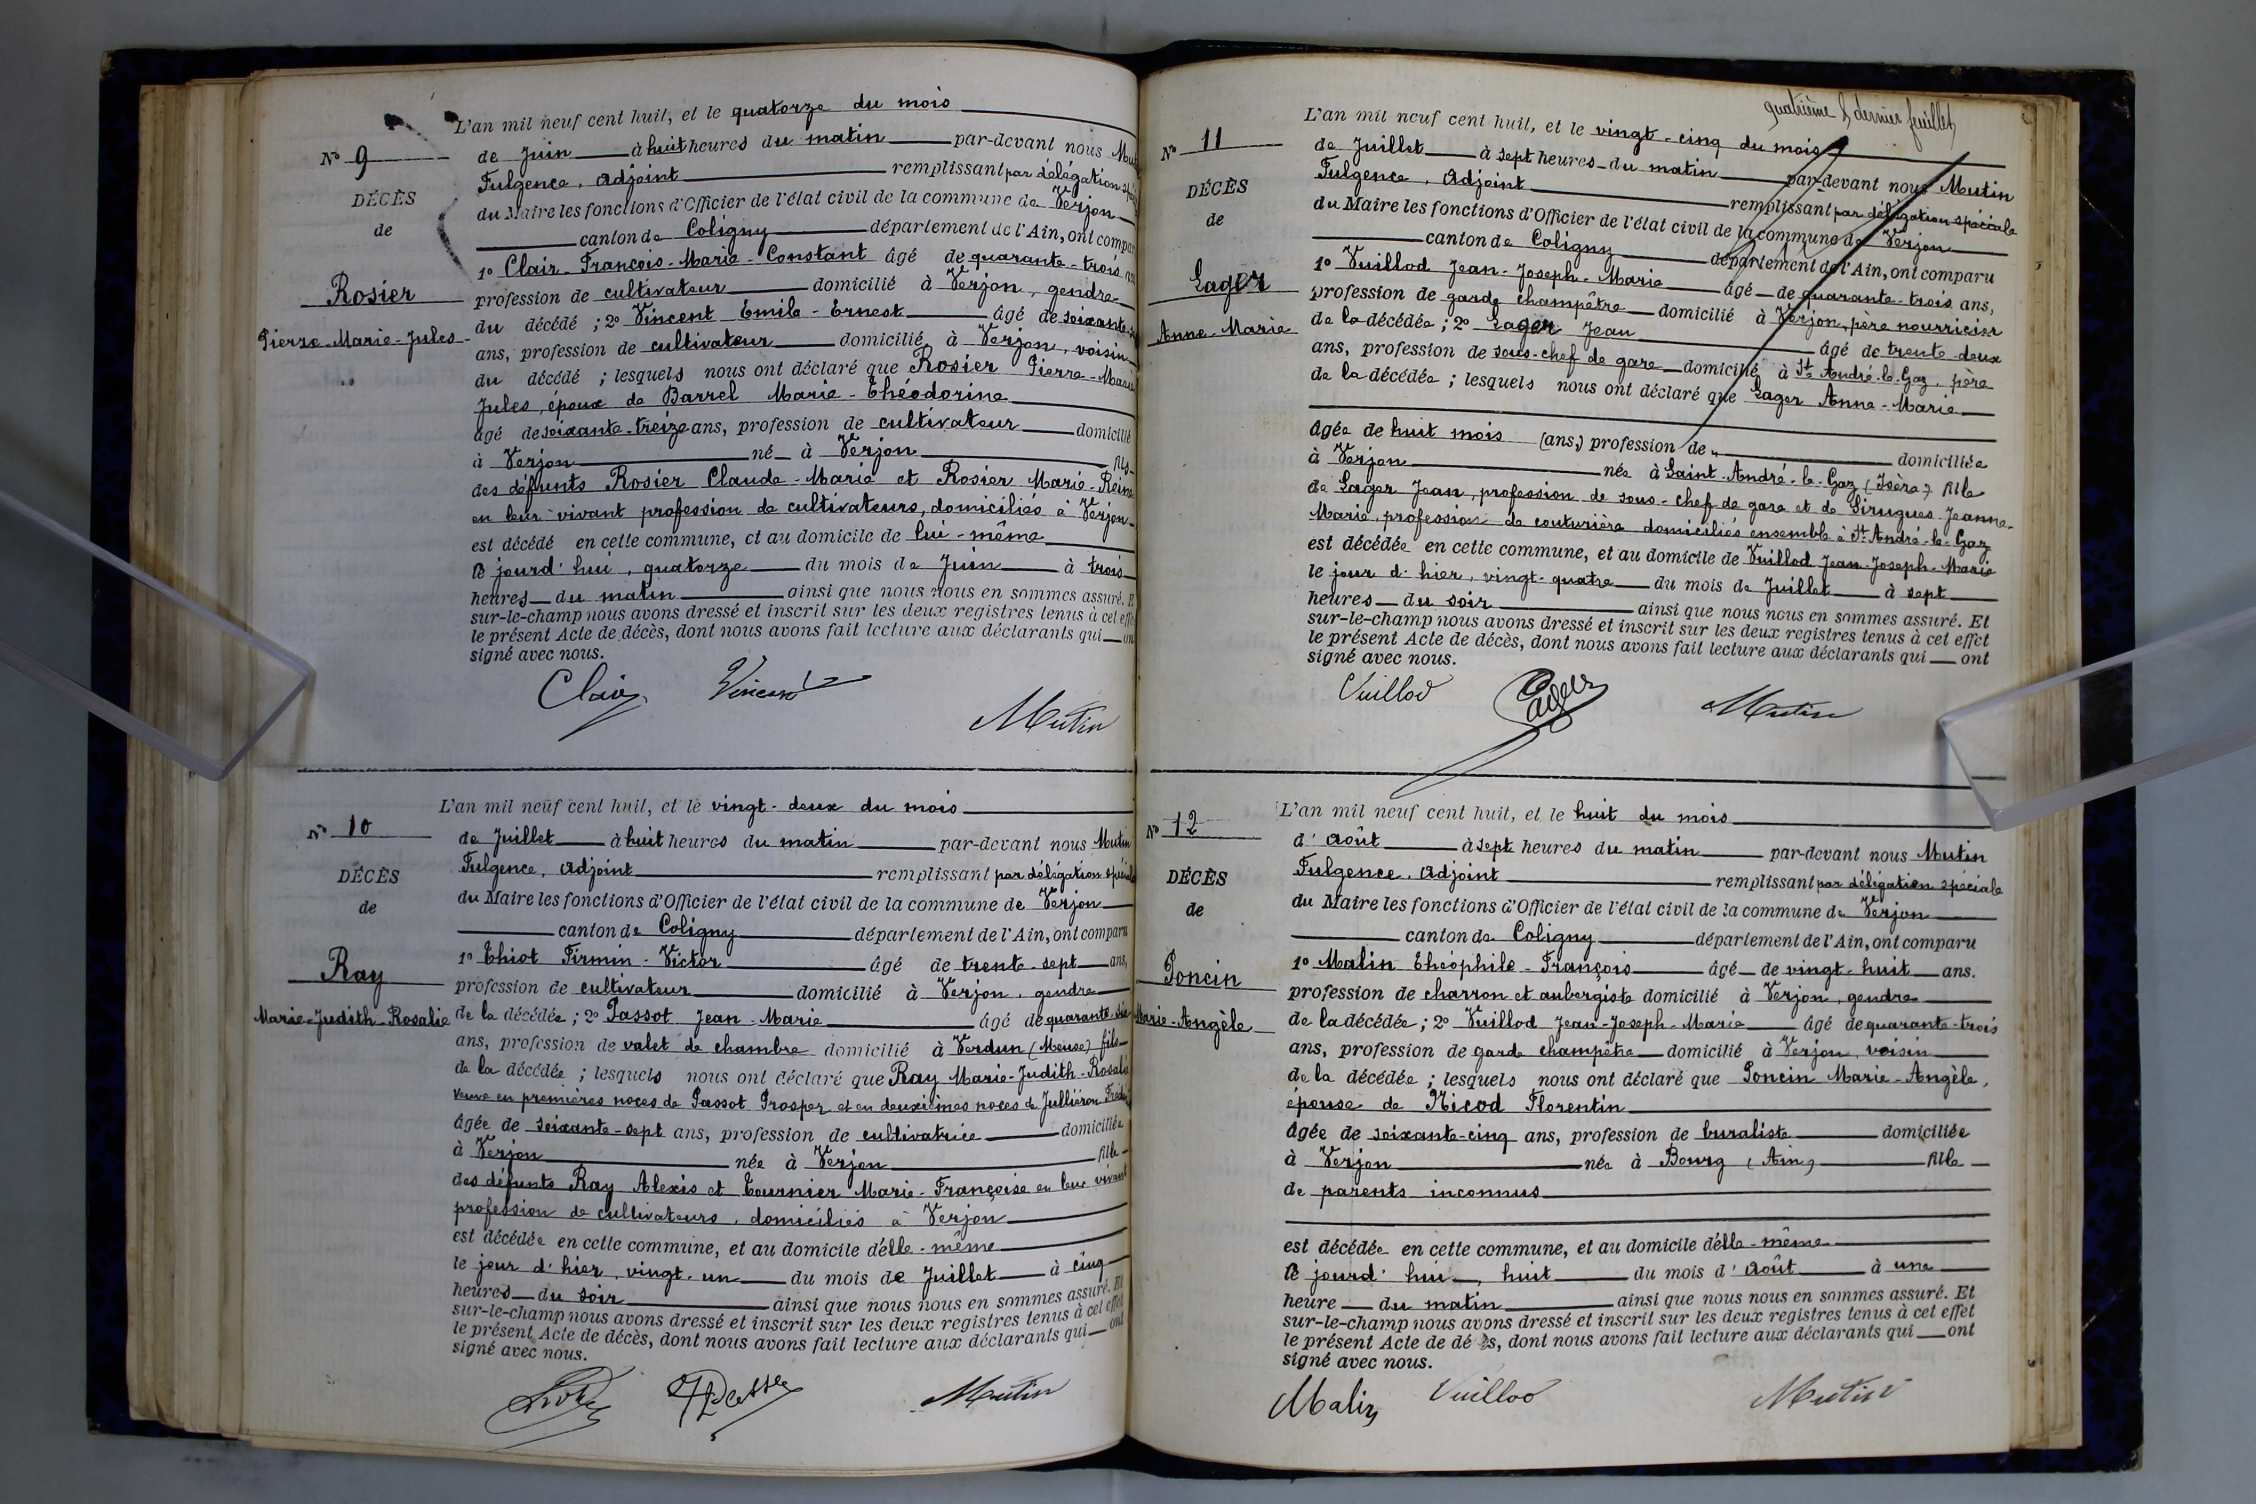 L'an mil neuf cent huit, et le quatorze du mois
N° 9
de Juin à huit heures du matin par-devant nous
DÉCÈS
Fulgence, Adjoint remplissant par délégation
de
du Maire les fonctions d'Officier de l'état civil de la commune de Verjon
canton de Coligny département de l'Ain, ont compar
1° Clair François-Marie-Constant âgé de quarante-trois
Rosier
profession de cultivateur domicilié à Verjon, gendre
Pierre-Marie-Jules
du décédé ; 2° Vincent Emile-Ernest âgé de soixante
ans, profession de cultivateur domicilié à Verjon, voisin
du décédé ; lesquels nous ont déclaré que Rosier Pierre-Marie
Jules, époux de Barrel Marie-Théodorine
âgé de soixante-treize ans, profession de cultivateur domicilié
à Verjon né à Verjon fils
des défunts Rosier Claude-Marie et Rosier Marie-Reine
en leur vivant profession de cultivateurs, domiciliés à Verjon
est décédé en cette commune, et au domicile de lui-même
le jourd'hui, quatorze du mois de Juin à trois
heures du matin ainsi que nous nous en sommes assuré. E
sur-le-champ nous avons dressé et inscrit sur les deux registres tenus à cet effe
le présent Acte de décès, dont nous avons fait lecture aux déclarants qui on
signé avec nous.
Clair Vincent Mutin
L'an mil neuf cent huit, et le vingt-deux du mois
N° 10
de Juillet à huit heures du matin par-devant nous Mutin
DÉCÈS
Fulgence, Adjoint remplissant par délégation spéciale
de
du Maire les fonctions d'Officier de l'état civil de la commune de Verjon
canton de Coligny département de l'Ain, ont comparu
1° Thiot Firmin-Victor âgé de trente-sept ans,
Ray
profession de cultivateur domicilié à Verjon, gendre
Marie-Judith-Rosalie
de la décédée ; 2° Passot Jean-Marie âgé de quarante-six
ans, profession de valet de chambre domicilié à Verdun (Meuse) fils
de la décédée ; lesquels nous ont déclaré que Ray Marie-Judith-Rosalie
veuve en premières noces de Passot Prosper et en deuxièmes noces de Julliéron
âgée de soixante-sept ans, profession de cultivatrice domiciliée
à Verjon née à Verjon fille
des défunts Ray Alexis et Tournier Marie-Françoise en leur vivant
profession de cultivateurs, domiciliés à Verjon
est décédée en cette commune, et au domicile d'elle-même
le jour d'hier, vingt-un du mois de Juillet à cinq
heures du soir ainsi que nous nous en sommes assuré. Et
sur-le-champ nous avons dressé et inscrit sur les deux registres tenus à cet effet
le présent Acte de décès, dont nous avons fait lecture aux déclarants qui ont
signé avec nous.
Mutin
quatrième & dernier feuillet
L'an mil neuf cent huit, et le vingt-cinq du mois
N° 11
de Juillet à sept heures du matin par-devant nous Mutin
DÉCÈS
Fulgence, Adjoint remplissant par délégation spéciale
de
du Maire les fonctions d'Officier de l'état civil de la commune de Verjon
canton de Coligny département de l'Ain, ont comparu
1° Vuillod Jean-Joseph-Marie âgé de quarante-trois ans,
Sager
profession de garde champêtre domicilié à Verjon, père nourricier
Anne-Marie
de la décédée ; 2° Sager Jean âgé de trente-deux
ans, profession de sous-chef de gare domicilié à St André-le-Gaz, père
de la décédée ; lesquels nous ont déclaré que Sager Anne-Marie
âgée de huit mois (ans,) profession de " domiciliée
à Verjon née à Saint-André-le-Gaz (Isère) fille
de Sager Jean, profession de sous-chef de gare et de Sirugues Jeanne-
Marie, profession de couturière domiciliés ensemble à St André-le-Gaz
est décédée en cette commune, et au domicile de Vuillod Jean-Joseph-Marie
le jour d'hier, vingt-quatre du mois de Juillet à sept
heures du soir ainsi que nous nous en sommes assuré. Et
sur-le-champ nous avons dressé et inscrit sur les deux registres tenus à cet effet
le présent Acte de décès, dont nous avons fait lecture aux déclarants qui ont
signé avec nous.
Vuillod Sager Mutin
L'an mil neuf cent huit, et le huit du mois
N° 12
d'Août à sept heures du matin par-devant nous Mutin
DÉCÈS
Fulgence, Adjoint remplissant par délégation spéciale
de
du Maire les fonctions d'Officier de l'état civil de la commune de Verjon
canton de Coligny département de l'Ain, ont comparu
1° Malin Théophile-François âgé de vingt-huit ans.
Poncin
profession de charron et aubergiste domicilié à Verjon, gendre
Marie-Angèle
de la décédée ; 2° Vuillod Jean-Joseph-Marie âgé de quarante-trois
ans, profession de garde champêtre domicilié à Verjon, voisin
de la décédée ; lesquels nous ont déclaré que Poncin Marie-Angèle,
épouse de Nicod Florentin
âgée de soixante-cinq ans, profession de buraliste domiciliée
à Verjon née à Bourg (Ain) fille
de parents inconnus
est décédée en cette commune, et au domicile d'elle-même
le jourd'hui, huit du mois d'Août à une
heure du matin ainsi que nous nous en sommes assuré. Et
sur-le-champ nous avons dressé et inscrit sur les deux registres tenus à cet effet
le présent Acte de dé ès, dont nous avons fait lecture aux déclarants qui ont
signé avec nous.
Malin Vuillod Mutin